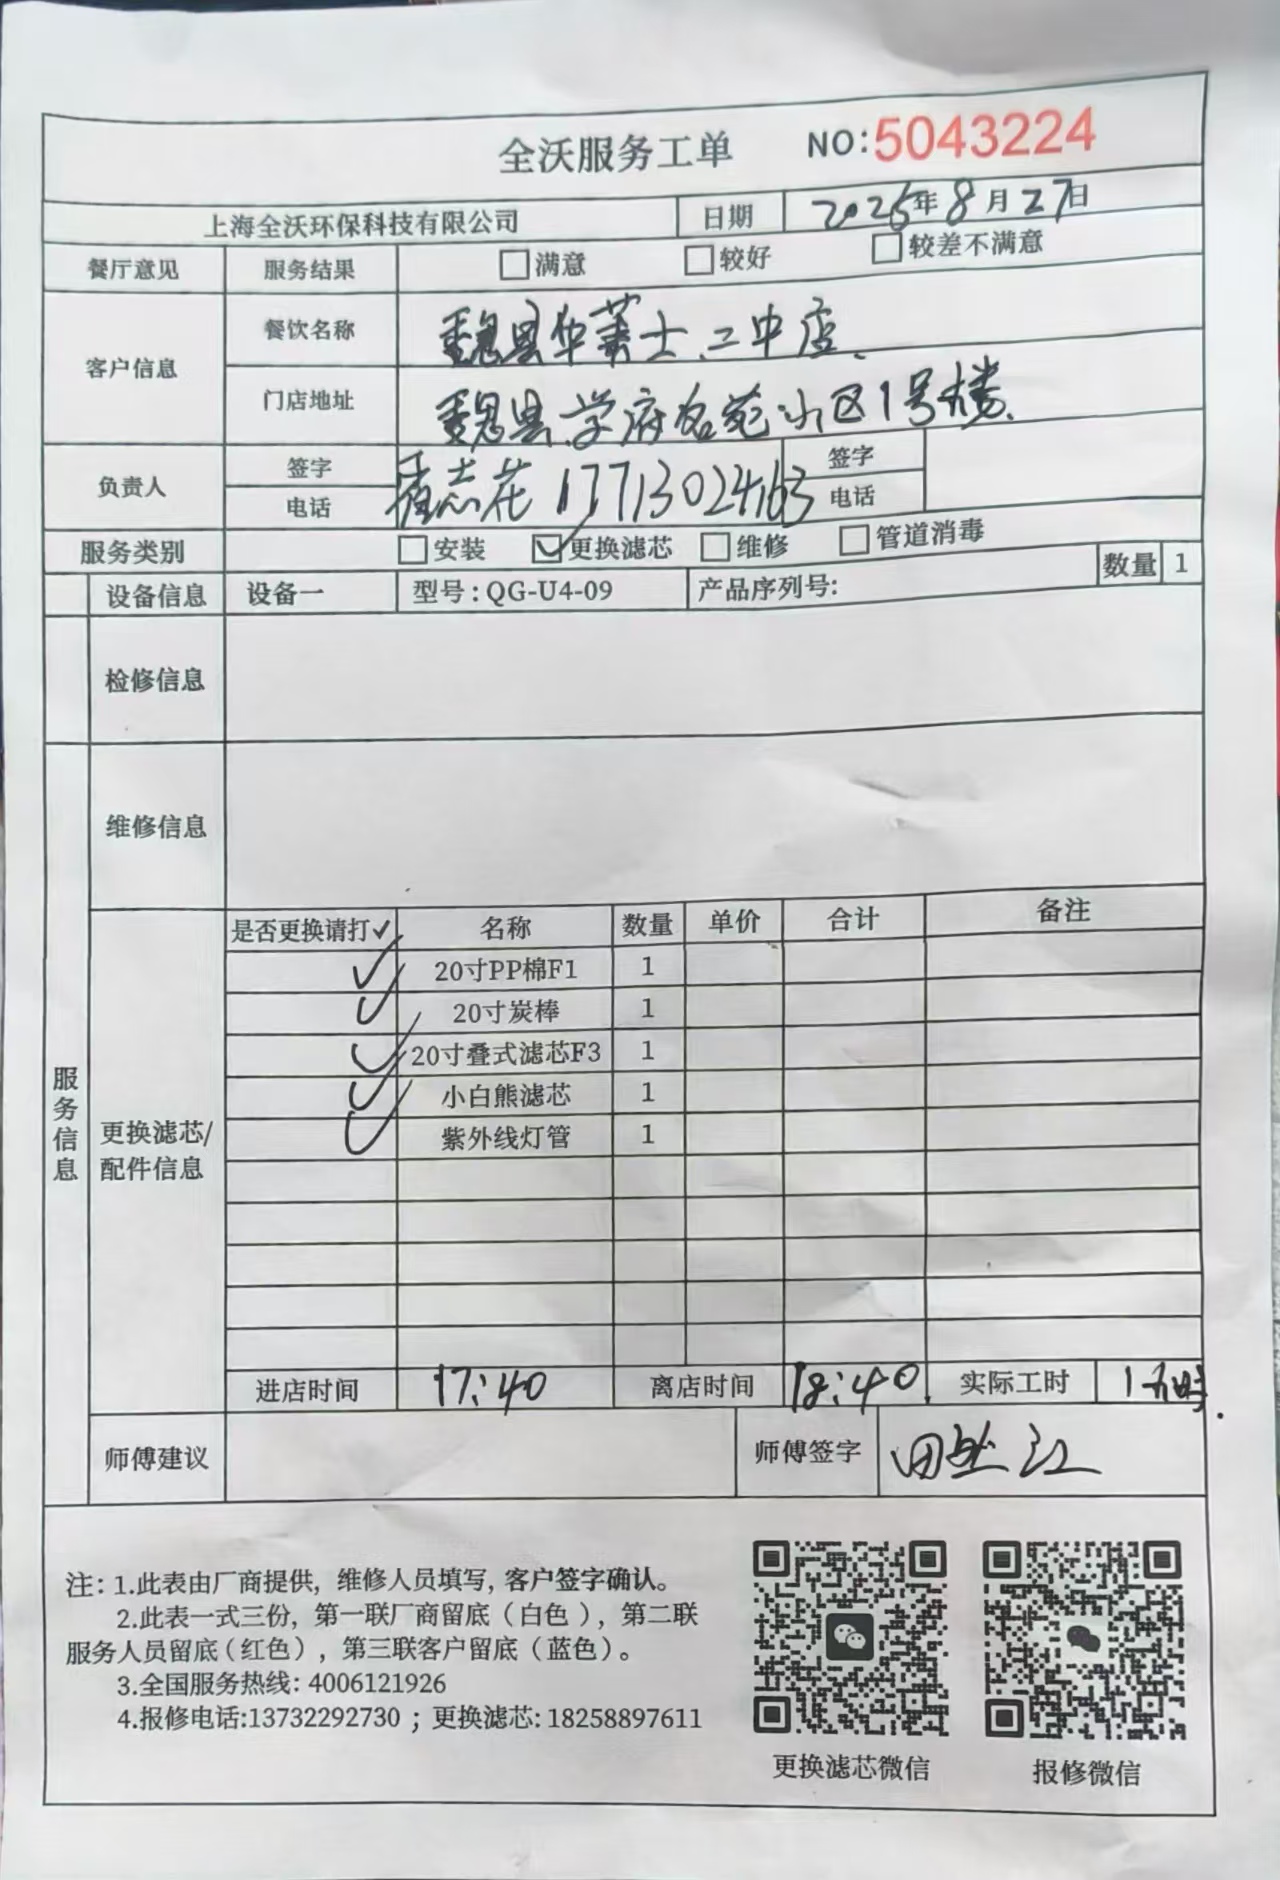 全沃服务工单 NO:5043224
上海全沃环保科技有限公司 日期 2025年8月27日
餐厅意见 服务结果 □满意 □较好 □较差不满意
客户信息 餐饮名称 魏县华莱士、二中店、
门店地址 魏县学府名苑小区1号楼、
负责人 签字 志花 签字
电话 17713024163 电话
服务类别 □安装 ☑更换滤芯 □维修 □管道消毒
设备信息 设备一 型号:QG-U4-09 产品序列号: 数量 1
检修信息
维修信息
服务信息
更换滤芯/配件信息
是否更换请打✓ 名称 数量 单价 合计 备注
✓ 20寸PP棉F1 1
✓ 20寸炭棒 1
✓ 20寸叠式滤芯F3 1
✓ 小白熊滤芯 1
✓ 紫外线灯管 1
进店时间 17:40 离店时间 18:40 实际工时 1小时.
师傅建议 师傅签字 田 江
注:1.此表由厂商提供,维修人员填写,客户签字确认。
2.此表一式三份,第一联厂商留底(白色),第二联
服务人员留底(红色),第三联客户留底(蓝色)。
3.全国服务热线:4006121926
4.报修电话:13732292730 ;更换滤芯:18258897611
更换滤芯微信 报修微信